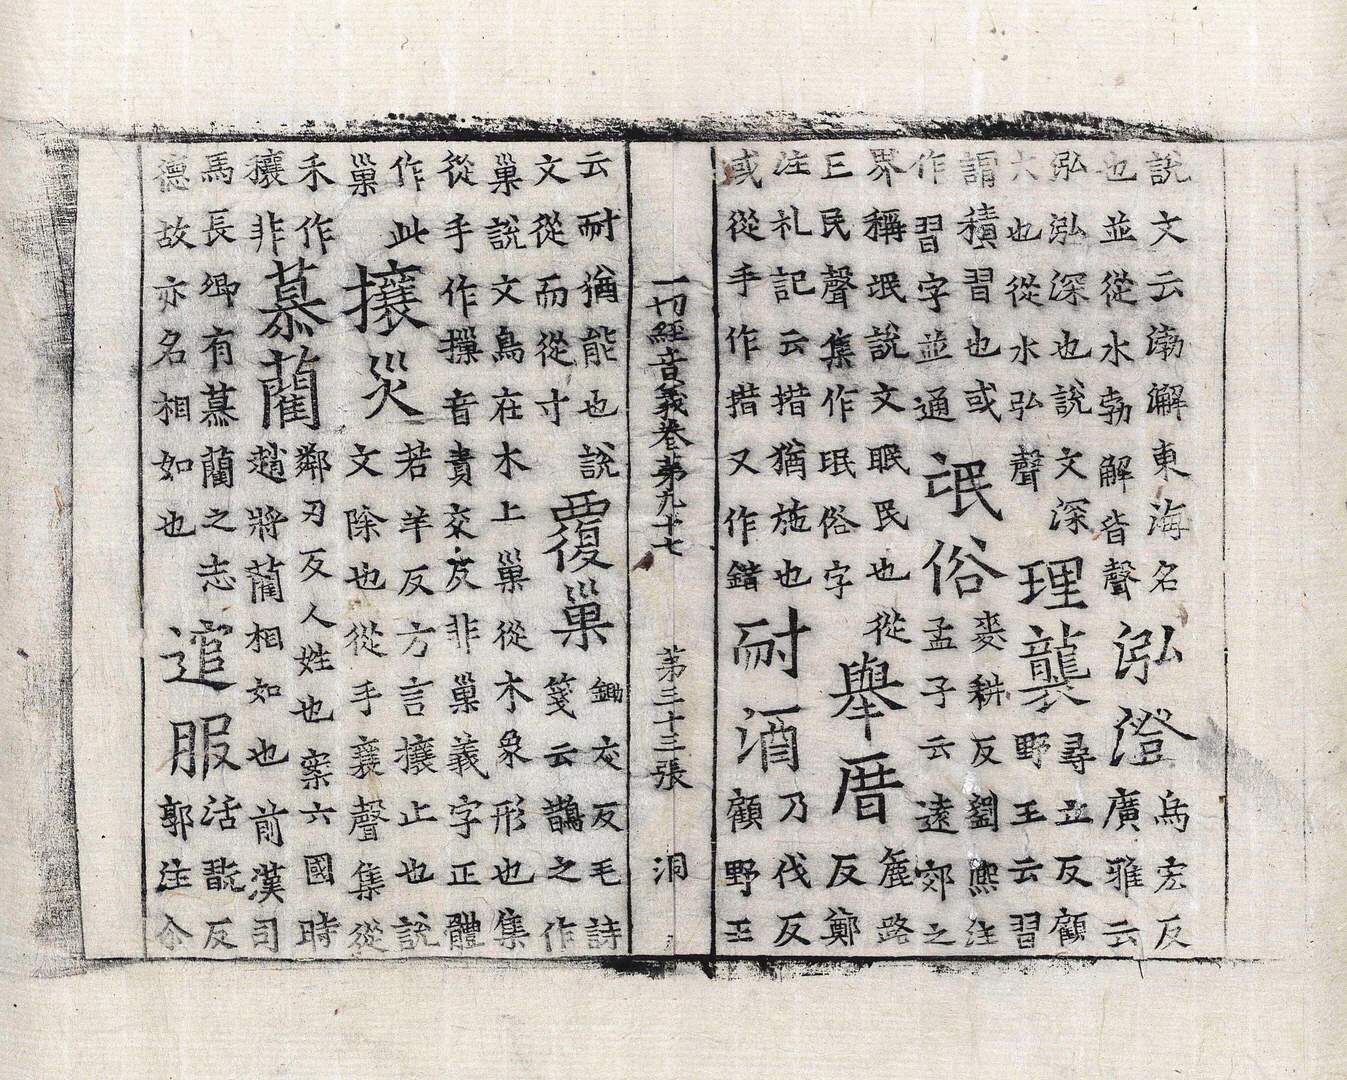 說文云渤澥東海名
也並從水勃解皆聲
泓澄
烏宏反
廣雅云
泓泓深也說文深
大也從水弘聲
理襲
尋立反顧
野王云習
謂積習也或
作習字並通
氓俗
麦耕反劉熙注
孟子云遠郊之
界稱氓說文眠民也從
亡民聲集作㞴俗字
舉厝
麁路
反鄭
注礼記云措猶施也
或從手作措又作錯
耐酒
乃代反
顧野王
一切經音義卷第九十七　第三十三張　洞
云耐猶能也說
文從而從寸
覆巢
鋤交反毛詩
箋云鵲之作
巢說文鳥在木上巢從木象形也集
從手作摷音責交反非巢義字正體
作此
巢
攘災
若羊反方言攘止也說
文除也從手襄聲集從
禾作
穰非
慕藺
鄰刃反人姓也案六國時
趙將藺相如也前漢司
馬長卿有慕藺之志
德故亦名相如也
逭服
活翫反
郭注尒